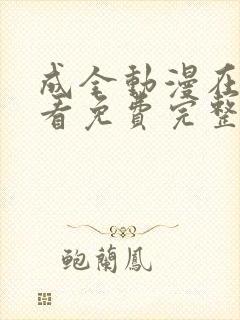 成全動漫在
看免費完整
鲍蘭鳳